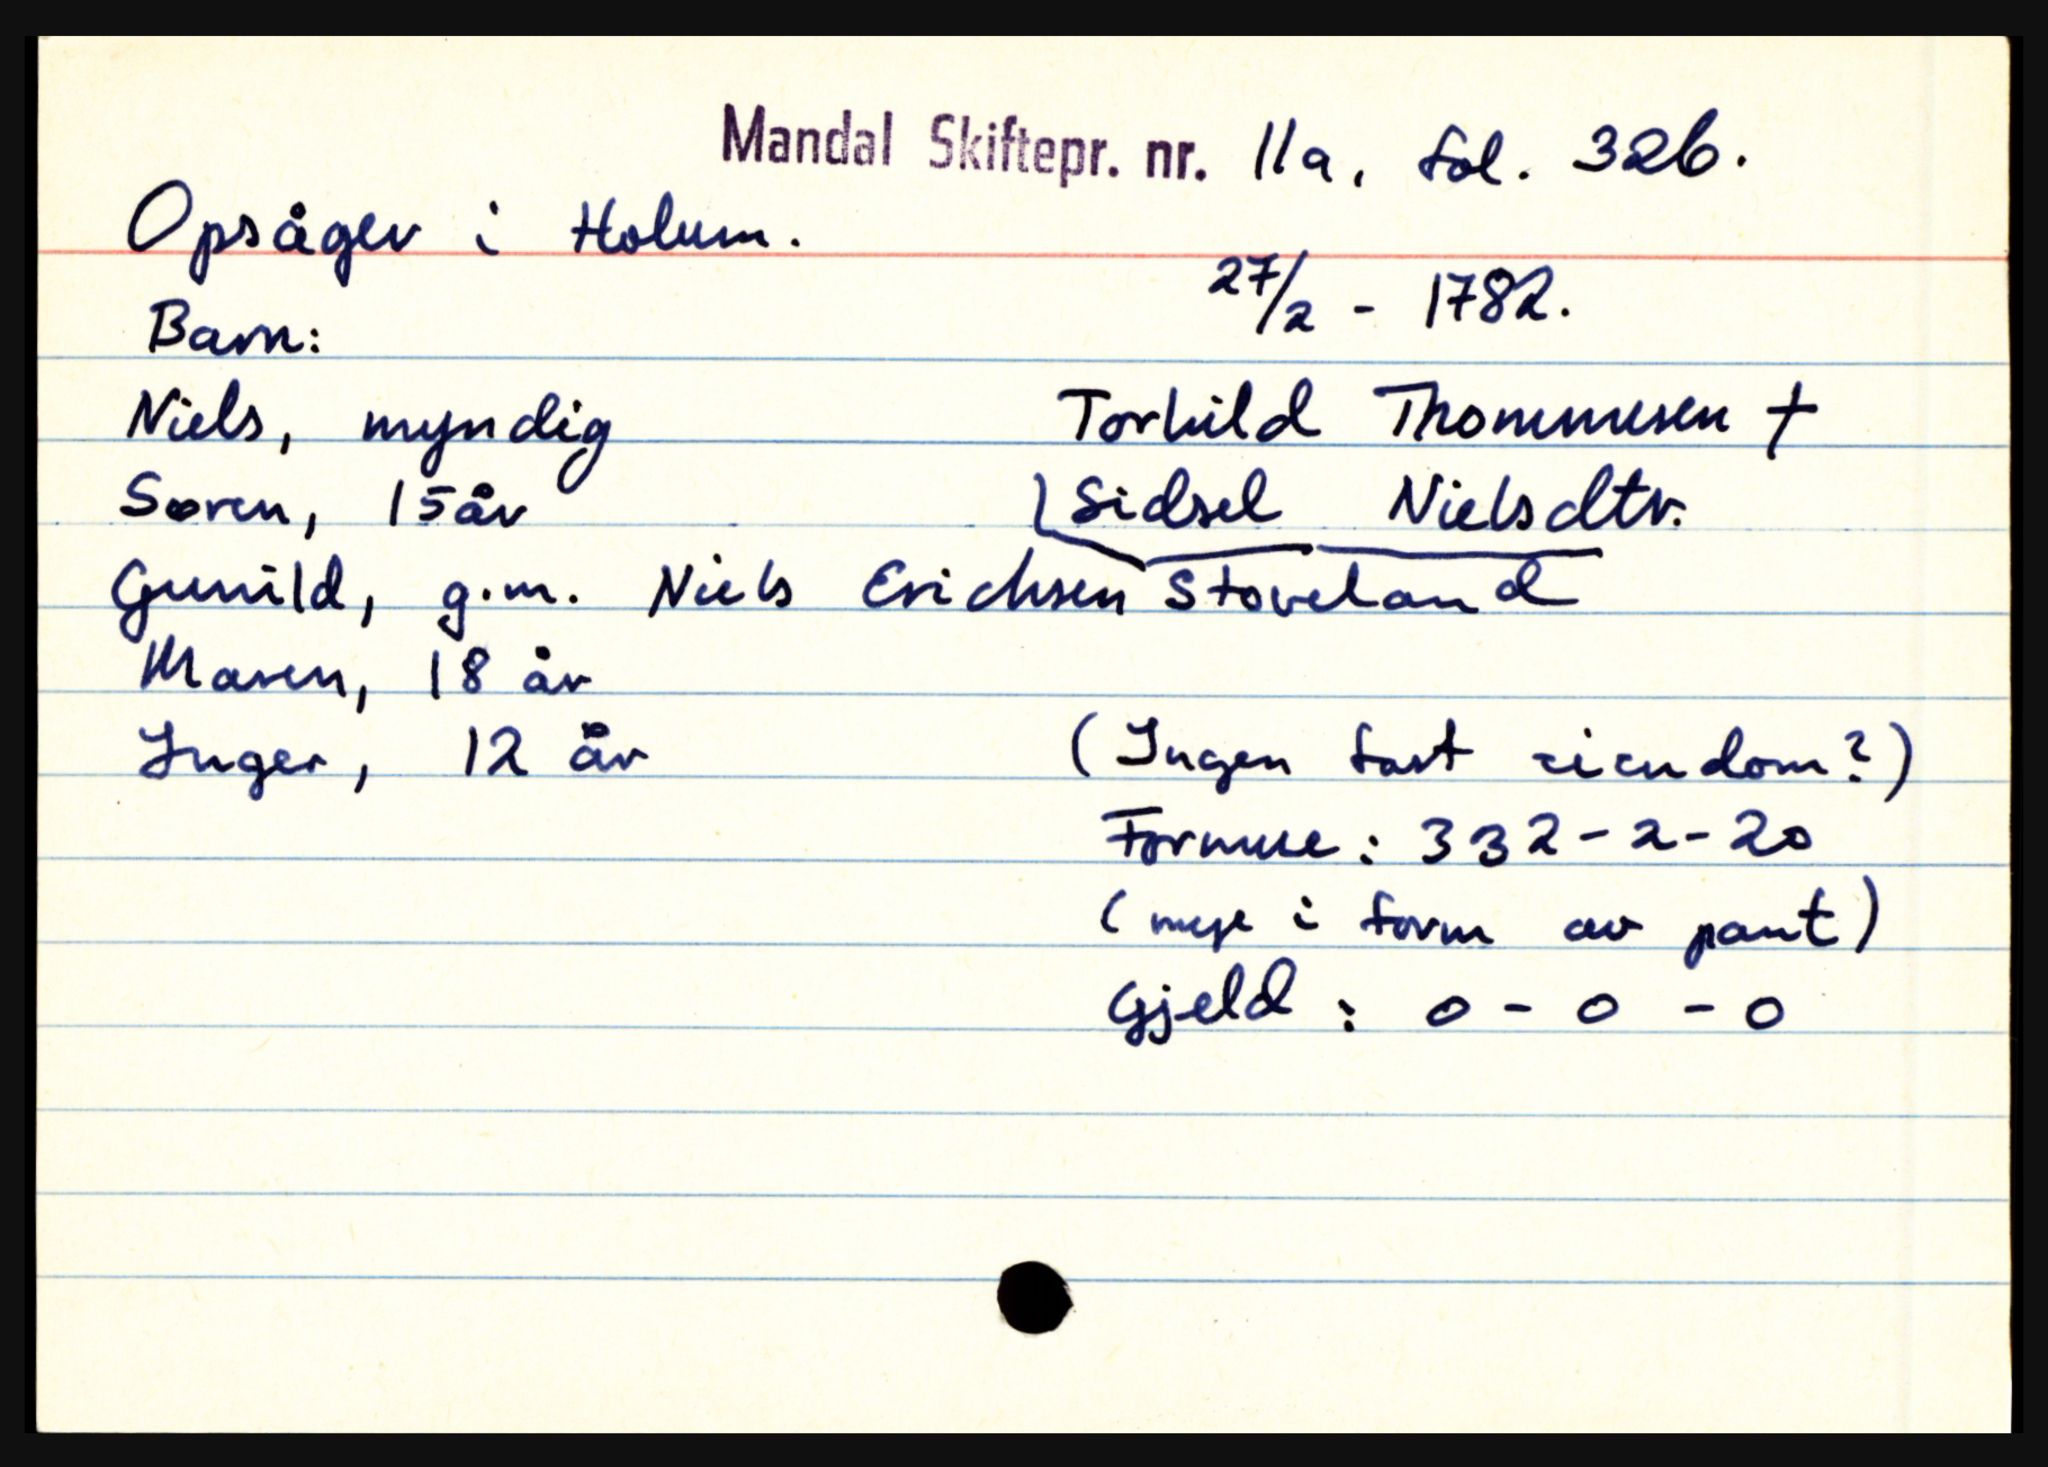 Mandal Skiftepr. nr. 11a, fol. 326.
Opsåger i Holum.
27/2 - 1782.
Barn:
Niels, myndig
Torkild Thommesen †
Søren, 15 år
Sidsel Nielsdtr.
Gunild, g.m. Niels Erichsen Stoveland
Maren, 18 år
Inger, 12 år
(Ingen fast eiendom?)
Formue: 332-2-20
(mye i form av pant)
Gjeld: 0-0-0